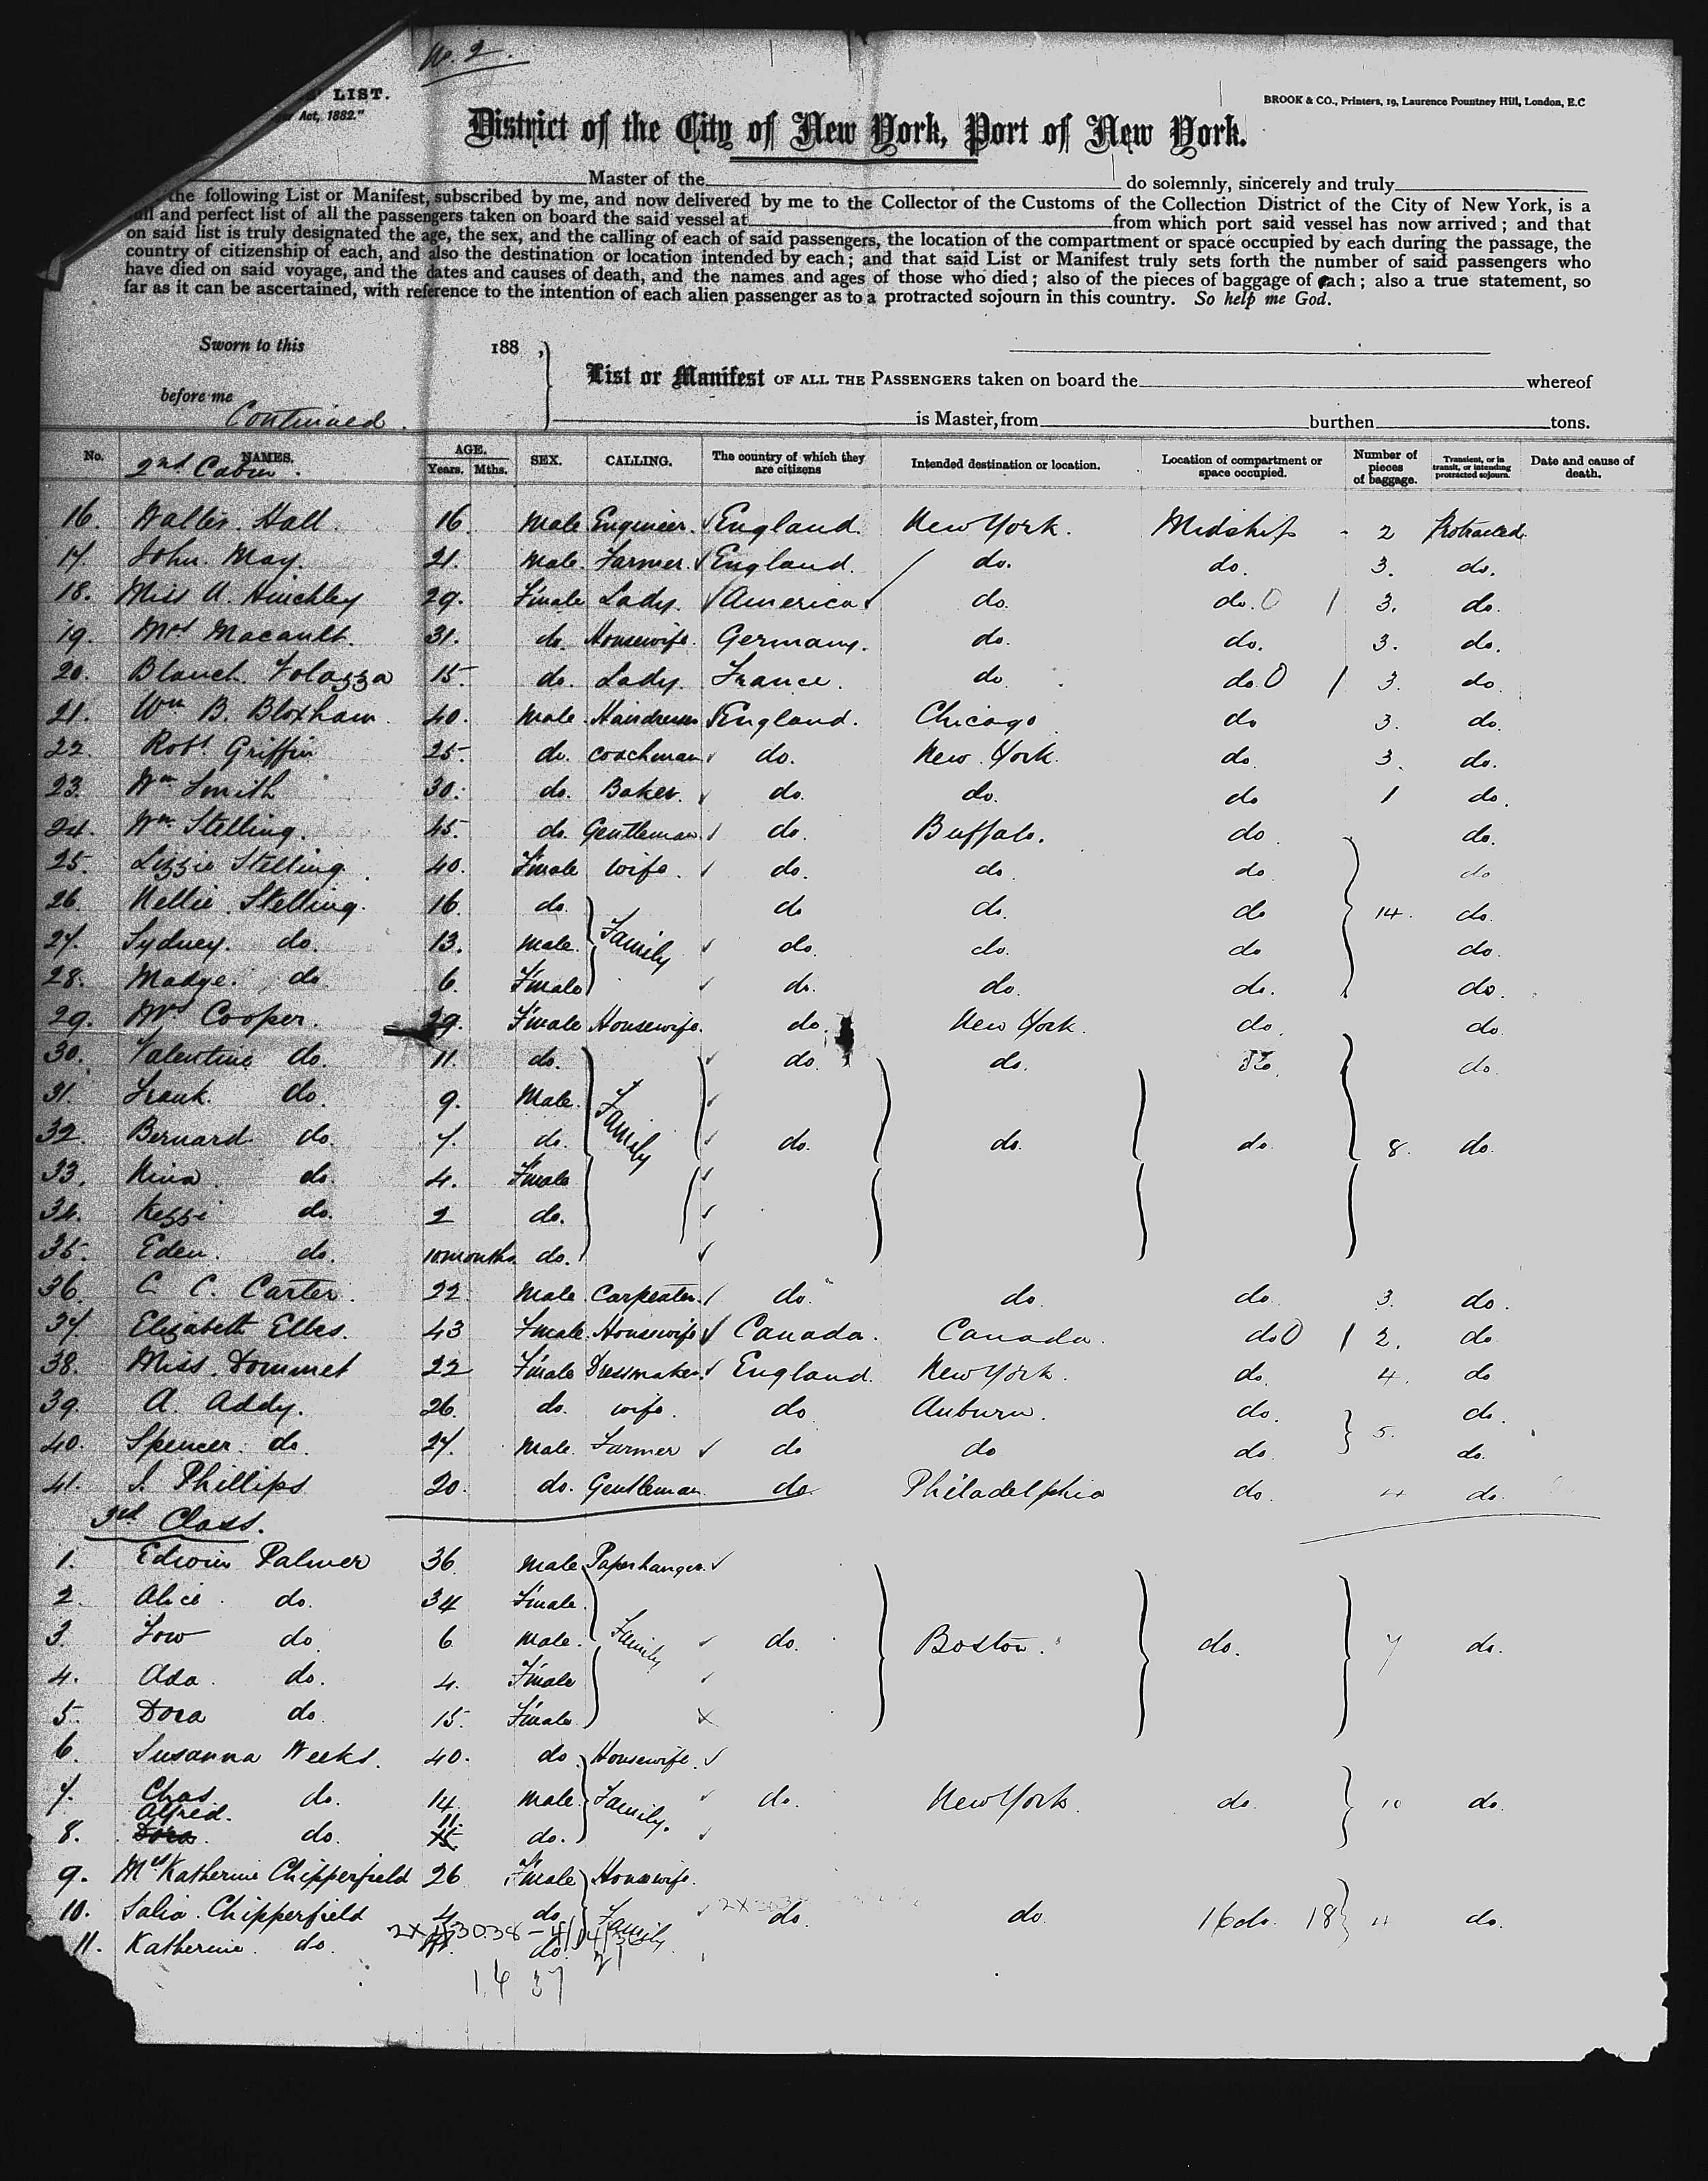 No. 2.
LIST.
Act, 1882."
BROOK & CO., Printers, 19, Laurence Pountney Hill, London, E.C
District of the City of New York, Port of New York.
Master of the do solemnly, sincerely and truly
the following List or Manifest, subscribed by me, and now delivered by me to the Collector of the Customs of the Collection District of the City of New York, is a
full and perfect list of all the passengers taken on board the said vessel at from which port said vessel has now arrived; and that
on said list is truly designated the age, the sex, and the calling of each of said passengers, the location of the compartment or space occupied by each during the passage, the
country of citizenship of each, and also the destination or location intended by each; and that said List or Manifest truly sets forth the number of said passengers who
have died on said voyage, and the dates and causes of death, and the names and ages of those who died; also of the pieces of baggage of each; also a true statement, so
far as it can be ascertained, with reference to the intention of each alien passenger as to a protracted sojourn in this country. So help me God.
Sworn to this 188 ,
before me
Continued.
List or Manifest OF ALL THE PASSENGERS taken on board the whereof
is Master, from burthen tons.
No. NAMES. AGE. Years. Mths. SEX. CALLING. The country of which they are citizens Intended destination or location. Location of compartment or space occupied. Number of pieces of baggage. Transient, or in transit, or intending protracted sojourn. Date and cause of death.
2nd Cabin.
16. Walter Hall. 16. Male Engineer. England. New York. Midship 2 Protracted.
17. John. May. 21. Male. Farmer. England. do. do. 3. do.
18. Miss A. Hinchley 29. Female Lady. America do. do. 0 1 3. do.
19. Mrs Macault. 31. do. Housewife. Germany. do. do. 3. do.
20. Blanch. 15. do. Lady. France. do. do. 0 1 3. do.
21. Wm B. Bloxham. 40. Male. England. Chicago do 3. do.
22. Robt Griffin 25. do. Coachman do. New York. do. 3. do.
23. Wm Smith 30. do. Baker. do. do. do 1 do.
24. Wm Stelling. 45. do. Gentleman. do. Buffalo. do do.
25. Lizzie Stelling. 40. Female wife. do. do. do do
26. Nellie. Stelling. 16. do. do do. do 14. do.
27. Sydney. do. 13. Male. Family do. do. do do
28. Madge. do. 6. Female do. do. do. do.
29. Mrs Cooper. 29. Female Housewife. do. New York. do. do.
30. Valentine do. 11. do. do. do. do. do
31. Frank. do. 9. Male. Family
32. Bernard do. 7. do. do. do. do 8. do.
33. Nina. do. 4. Female
34. Kezzi do. 2 do.
35. Eden. do. 10 months. do.
36. C. C. Carter. 22. Male. Carpenter. do. do do 3. do.
37. Elizabeth Elles. 43 Female. Housewife Canada. Canada. do 0 1 2. do
38. Miss. Dommet 22 Female Dressmaker. England. New York. do. 4. do
39. A. Addy. 26. do. wife. do Auburn. do. do.
40. Spencer. do. 27. Male. Farmer do do do. 5. do.
41. J. Phillips 20. do. Gentleman. do. Philadelphia do. do.
3rd Class.
1. Edwin Palmer 36 Male Paperhanger.
2. Alice. do. 34 Female.
3. do. 6 Male. Family do. Boston. do. 7 do.
4. Ada. do. 4. Female
5. Dora do. 15. Female
6. Susanna Weeks. 40. do. Housewife.
7. Chas. do. 14. Male. Family. do. New York. do. 10 do.
Alfred. 11.
8. Dora do. 15 do.
9. Mrs Katherine Chipperfield 26 Female Housewife.
10. Chipperfield 4 do. Family do. do. 16 do. 18 do.
11. Katherine. do. do.